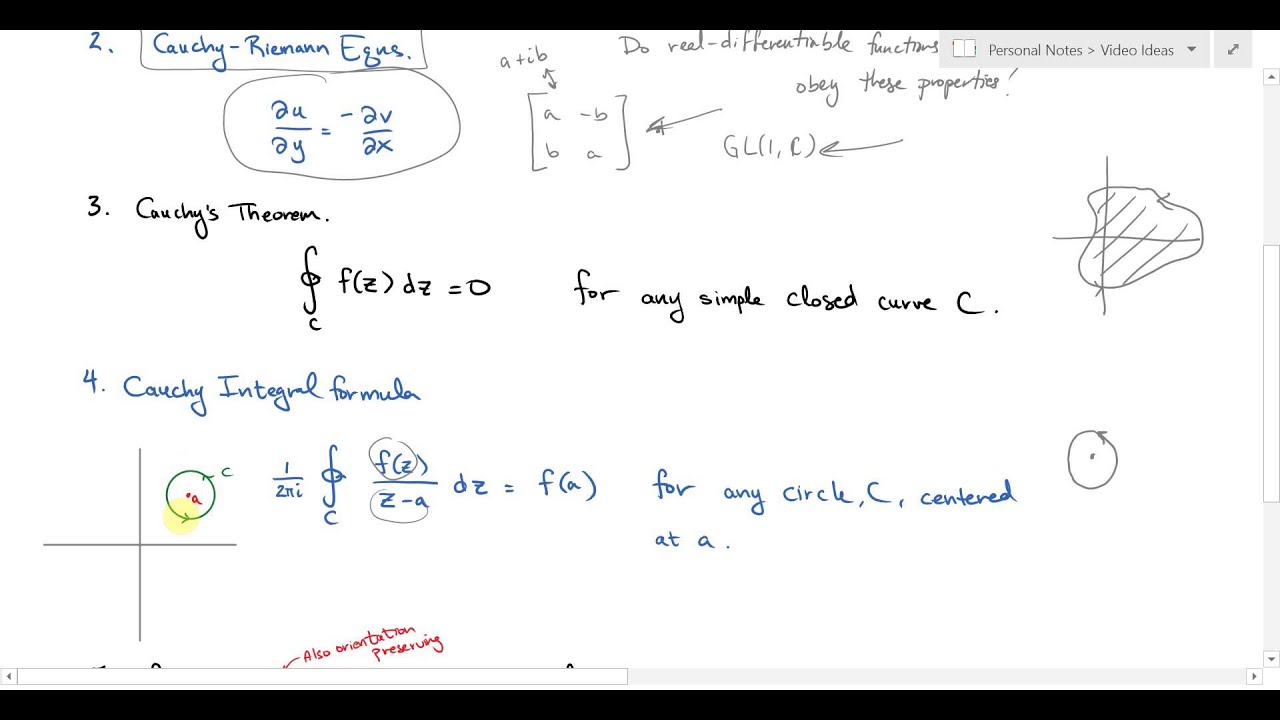 2. Cauchy-Riemann Eqns.
a+ib
Do real-differentiable functions
obey these properties!
Personal Notes > Video Ideas
∂u/∂y = -∂v/∂x
[a -b
b a]
GL(1, C)
3. Cauchy's Theorem.
∮_C f(z) dz = 0 for any simple closed curve C.
4. Cauchy Integral formula
C
a
1/2πi ∮_C f(z)/z-a dz = f(a) for any circle, C, centered
at a.
Also orientation
preserving